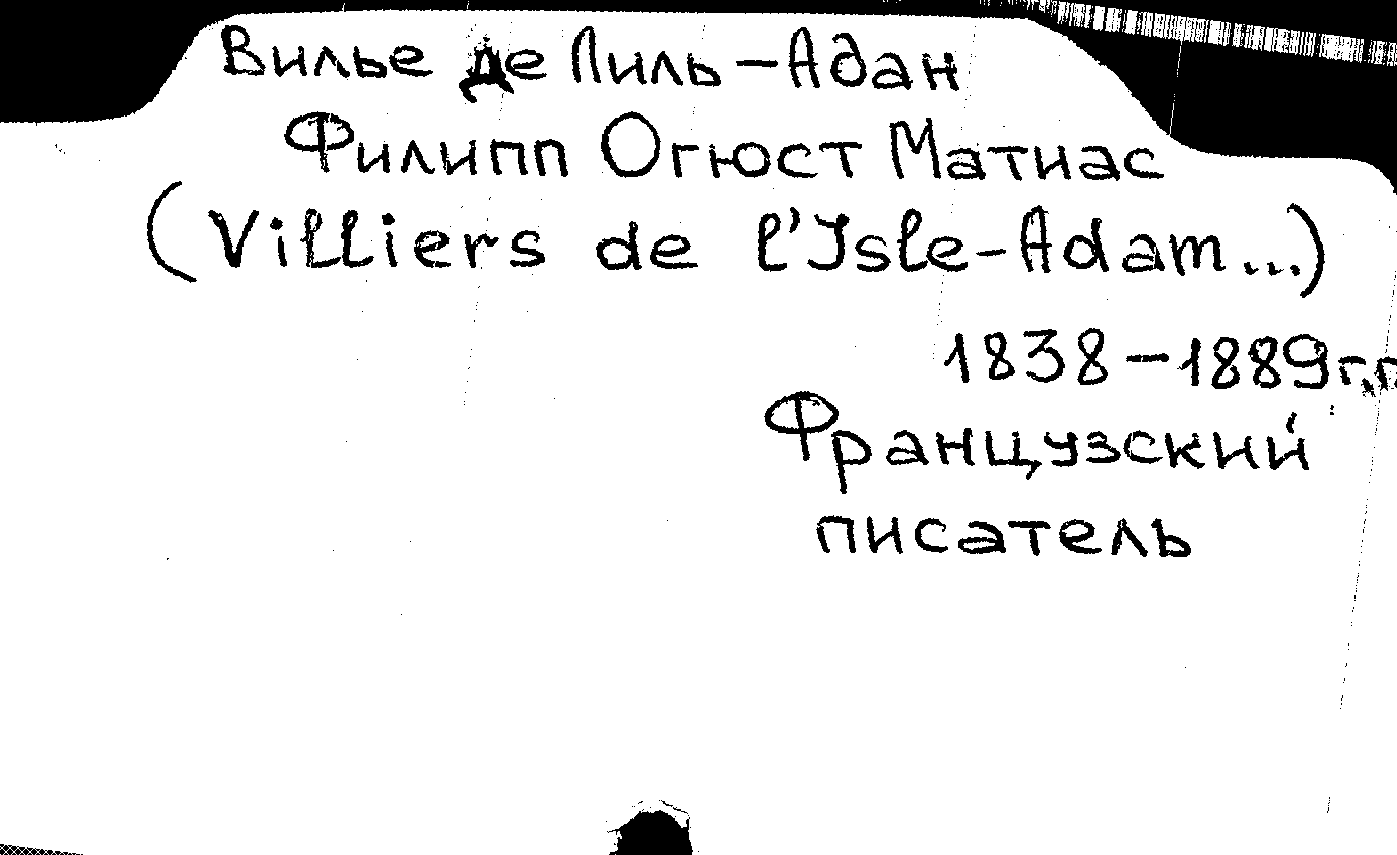 Вилье де Лиль-Адан
Филипп Огюст Матиас
(Villiers de l'Isle-Adam...)
1838-1889г.г
Французский
писатель